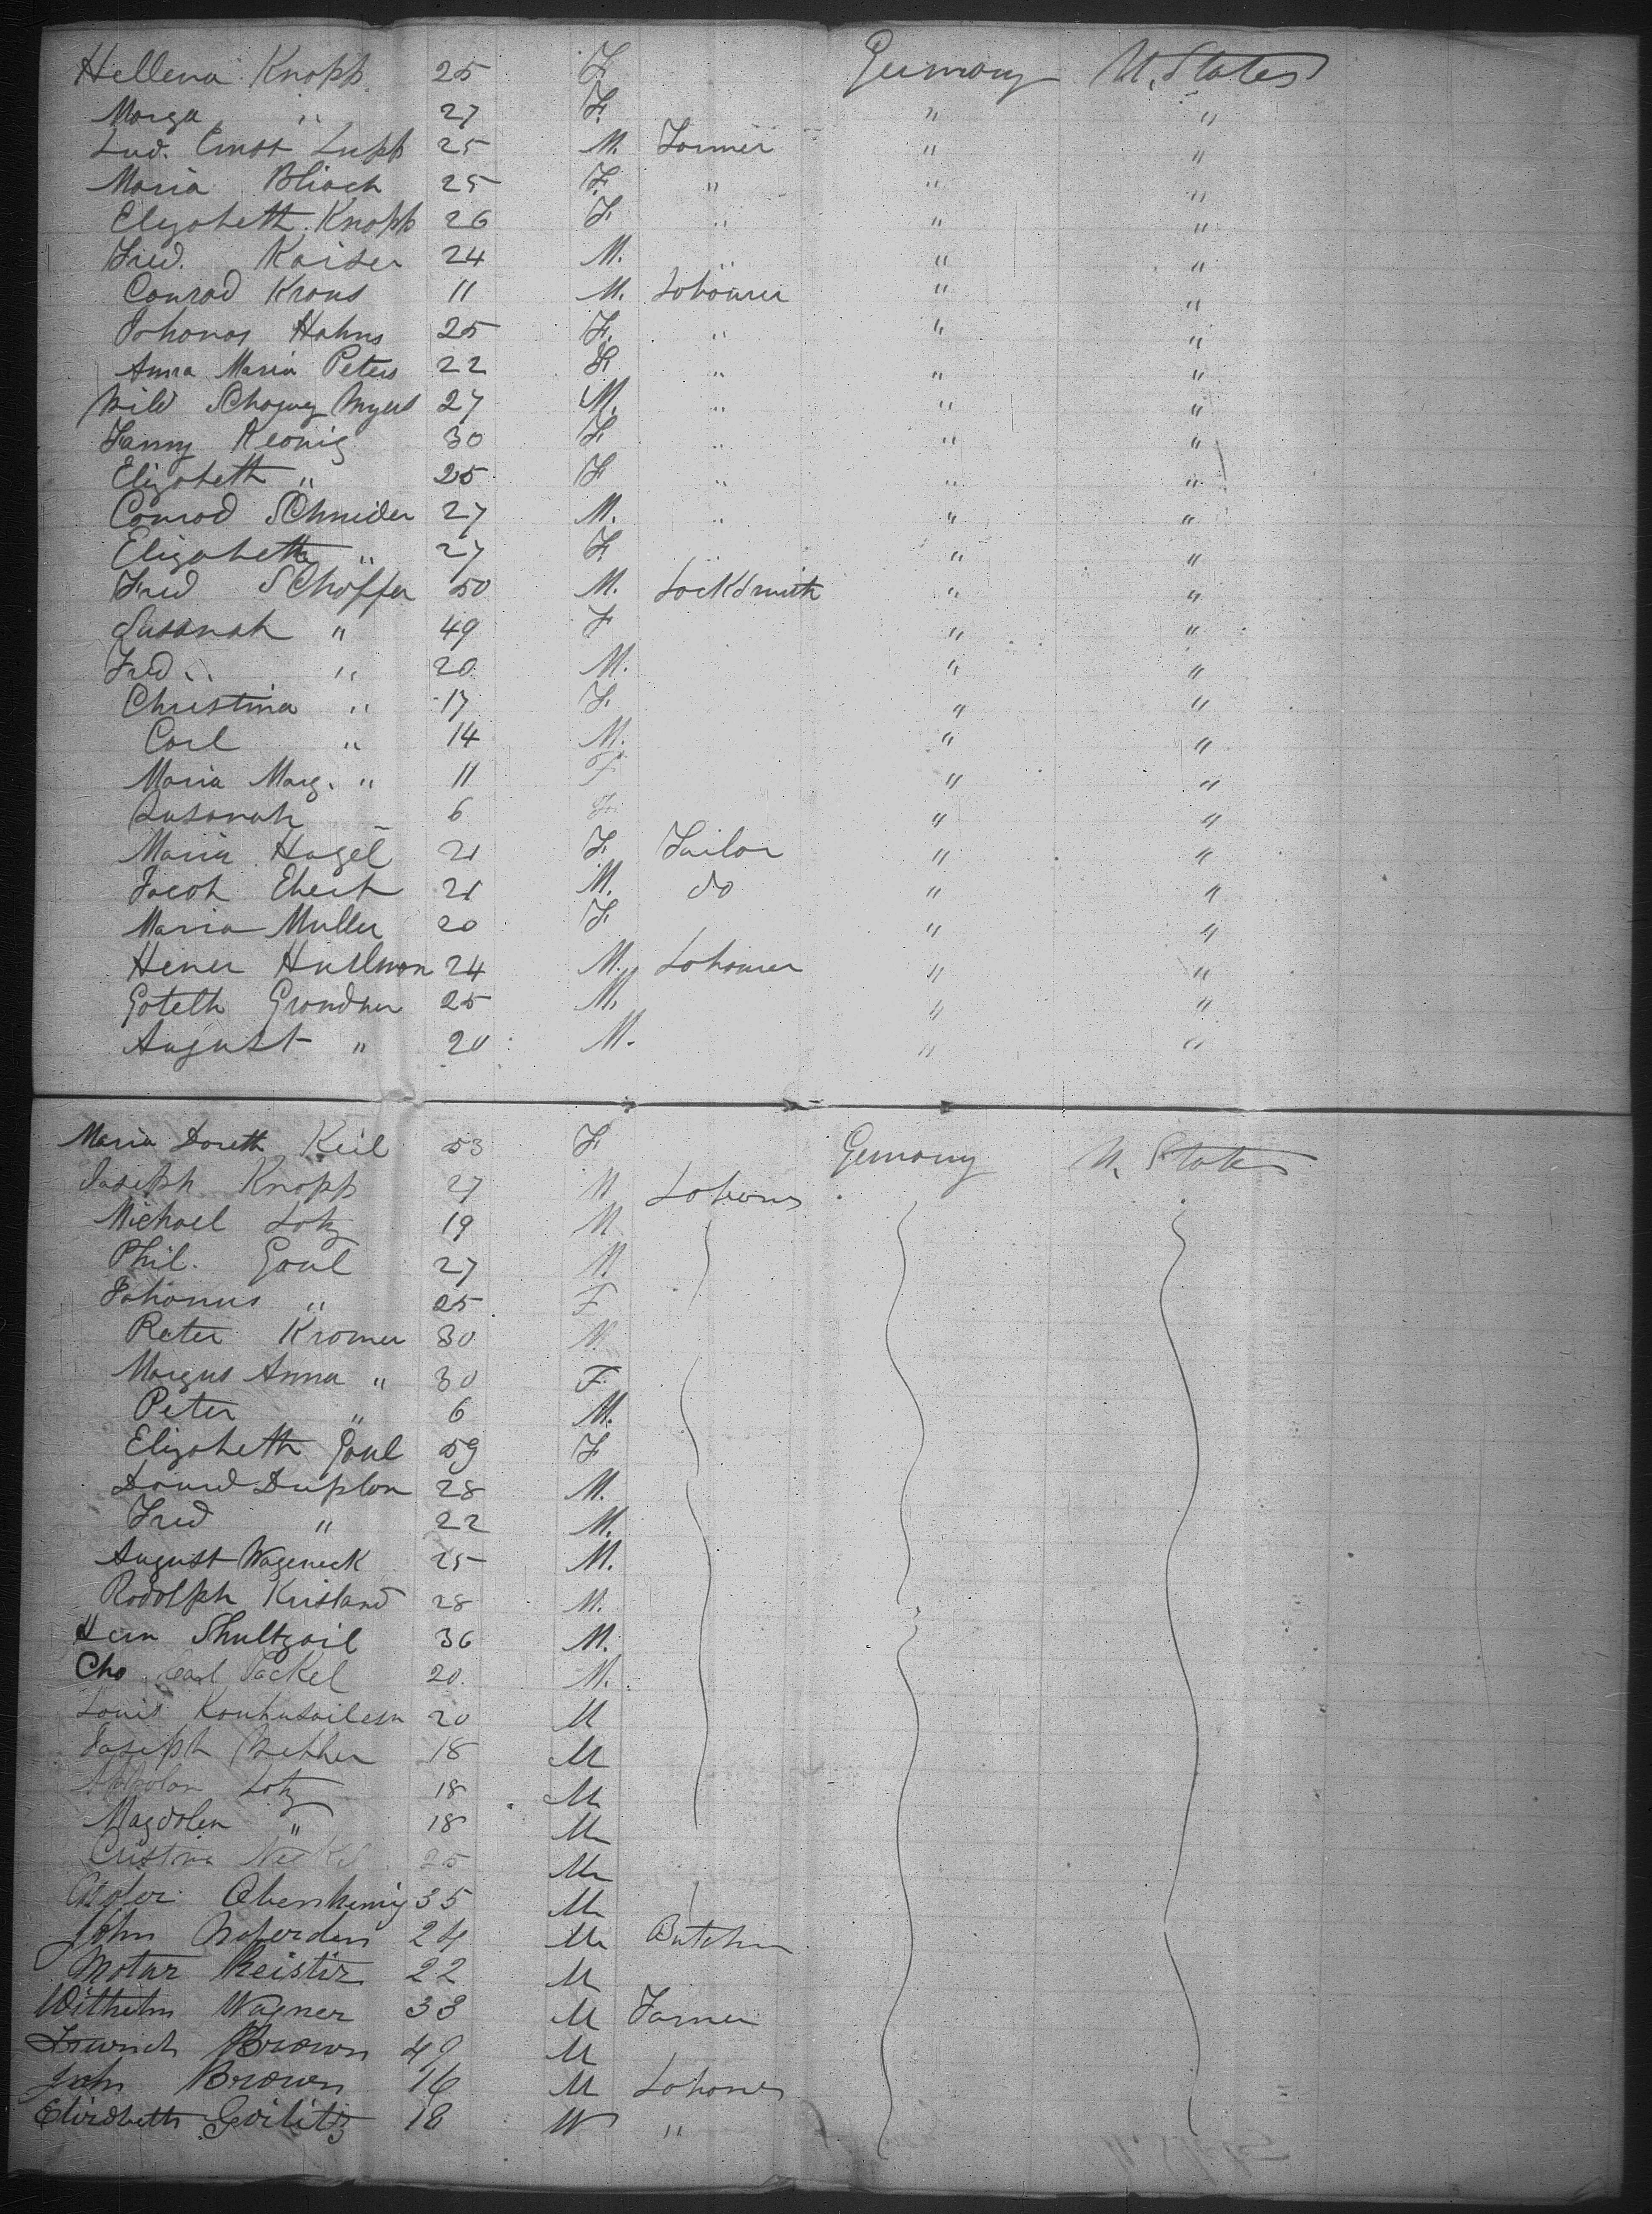 Hellena Knopp 25 F Germany U. States
Marga " 27 F. " "
Lud. Ernst Lupp 25 M. Farmer " "
Maria Bliach 25 F. " " "
Elizabeth Knopp 26 F " " "
Fred. Kaiser 24 M. " " "
Conrad Kraus 11 M. Labourer " "
Johanas Hahns 25 F. " " "
Anna Maria Peters 22 F " " "
Myers 27 M. " " "
Fanny Keonig 30 F " " "
Elizabeth " 25 F " " "
Conrad Schneider 27 M. " " "
Elizabeth " 27 F. " "
Fred Schoffer 50 M. Locksmith " "
Susanah " 49 F " "
Fred " 20 M. " "
Christina " 17 F. " "
Carl " 14 M. " "
Maria Marg. " 11 F " "
Susanah 6 F " "
Maria Hagel 21 F. Tailor " "
Jacob Ebert 21 M. do " "
Maria Muller 20 F " "
Hener Hurlman 24 M. Labourer " "
Goteth Grandner 25 M. " "
August " 20 M. " "
Maria Doreth Keil 53 F Germany U. States
Joseph Knopp 27 M Labourer
Michael Lotz 19 M
Phil. Gaul 27 M.
Johanus " 25 F
Peter Kromer 30 M.
Margus Anna " 30 F.
Peter " 6 M.
Elizabeth Gaul 59 F
David Duplon 28 M.
Fred " 22 M.
August Wageneck 25 M.
Rodolph Krisland 28 M.
Hern Shultzail 36 M.
Cho Carl Packel 20. M.
Louis 20 M
Joseph Webber 18 M
Lotz 18 M
Magdolen " 18 M
Cristina 25 M
35 M
John 24 M Butcher
Reister 22 M
Wilhelm Wagner 33 M Farmer
Brown 49 M
John Brown 16 M Labourer
Elizabeth 18 W "